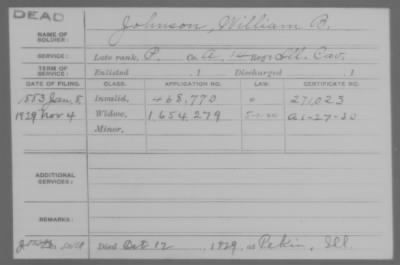 DEAD
NAME OF SOLDIER: Johnson, William B.
SERVICE: Late rank, P. Co. A, 14 Reg't Ill. Cav.
TERM OF SERVICE: Enlisted , 1 Discharged , 1
DATE OF FILING. CLASS. APPLICATION NO. LAW. CERTIFICATE NO.
1883 Jan. 8 Invalid, 468,770 271,023
1929 Nov 4 Widow, 1,654,279 5-1-20 A1-27-30
Minor,
ADDITIONAL SERVICES:
REMARKS:
Died Oct 12, 1929, at Pekin, Ill.